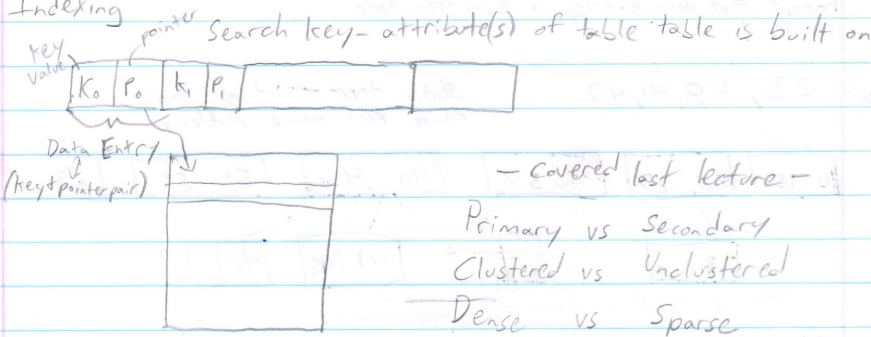 Indexing
pointer Search key - attribute(s) of table table is built on
key
value
K₀ P₀ K₁ P₁
Data Entry
(key+pointer pair)
- Covered last lecture -
Primary vs Secondary
Clustered vs Unclustered
Dense vs Sparse